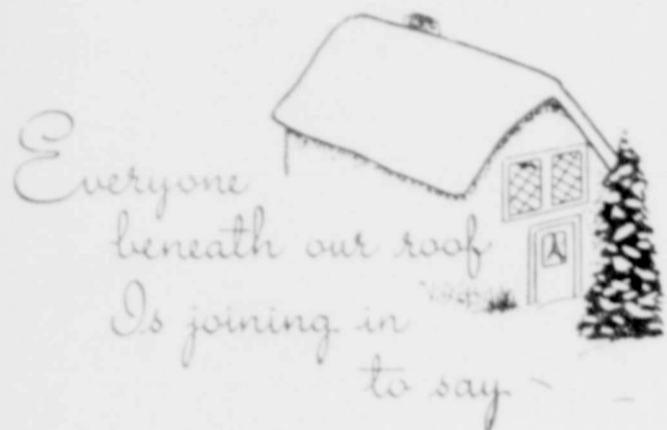 Everyone
beneath our roof
Is joining in
to say -